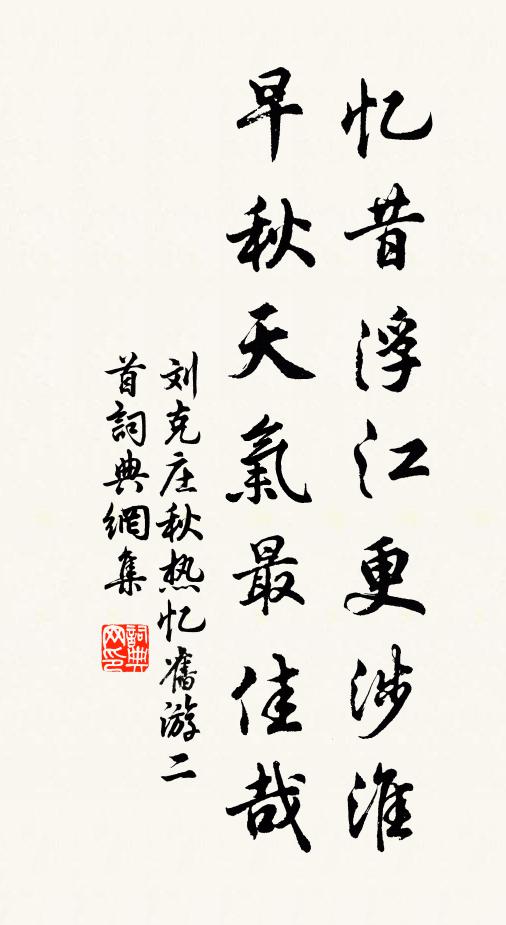 忆昔浮江更涉淮
早秋天氣最佳哉
刘克庄秋热忆舊游二
首詞典網集
詞典网印